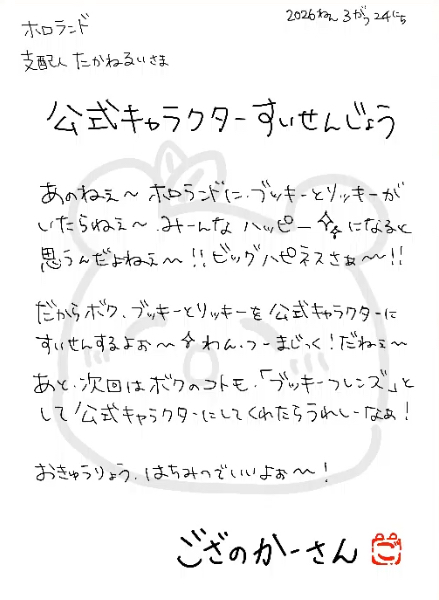 2026ねん 3がつ 24にち
ホロランド
支配人 たかねるいさま
公式キャラクターすいせんじょう
あのねぇ〜 ホロランドに、ブッキーとリッキーが
いたらねぇ〜 みーんな ハッピー✧になると
思うんだよねぇ〜!!ビッグハピネスさぁ〜!!
だからボク、ブッキーとリッキーを公式キャラクターに
すいせんするよぉ〜✧わん、つー まじっく!だねぇ〜
あと、次回はボクのコトモ、「ブッキーフレンズ」と
して公式キャラクターにしてくれたらうれしーなぁ!
おきゅうりょう、はちみつでいいよぉ〜!
ござのかーさん